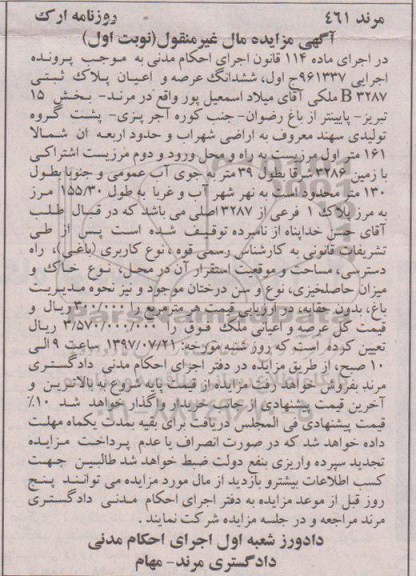 مرند ٤٦١ روزنامه ارک
آگهی مزایده مال غیرمنقول(نوبت اول)
در اجرای ماده ۱۱۴ قانون اجرای احکام مدنی به موجب پرونده
اجرایی ۹۶۱۳۳۷ج اول، ششدانگ عرصه و اعیان پلاک ثبتی
B ۳۲۸۷ ملکی آقای میلاد اسمعیل پور واقع در مرند- بخش ۱۵
تبریز- پایینتر از باغ رضوان- جنب کوره آجر پزی- پشت گروه
تولیدی سهند معروف به اراضی شهراب و حدود اربعه آن شمالا
۱۶۱ متر اول مرزیست به راه و محل ورود و دوم مرزیست اشتراکی
با زمین ۳۲۸۶ شرقا بطول ۳۹ متر به جوی آب عمومی و جنوبا بطول
۱۳۰ متر محدود است به نهر شهر آب و غربا به طول ۱۵۵/۳۰ متر
به مرز پلاک ۱ فرعی از ۳۲۸۷ اصلی می باشد که در قبال طلب
آقای حسن خداپناه از نامبرده توقیف شده است پس از طی
تشریفات قانونی به کارشناس رسمی قوه ،نوع کاربری (باغی)، راه
دسترسی، مساحت و موقعیت استقرار آن در محل، نوع خاک و
میزان حاصلخیزی، نوع و سن درختان موجود و نیز نحوه مدیریت
باغ، بدون حقابه، در ارزیابی و هر مترمربع از ۳۰۰/۰۰۰ریال و
قیمت کل عرصه و اعیانی ملک فوق را ۳/۵۷۰/۰۰۰/۰۰۰ ریال
تعیین کرده است که روز شنبه مورخه: ۱۳۹۷/۰۷/۲۱ ساعت ۹ الی
۱۰ صبح، از طریق مزایده در دفتر اجرای احکام مدنی دادگستری
مرند بفروش خواهد رفت مزایده از قیمت پایه شروع به بالاترین و
آخرین قیمت پیشنهادی از جانب خریدار واگذار خواهد شد ۱۰٪
قیمت پیشنهادی فی المجلس دریافت برای بقیه بمدت یکماه مهلت
داده خواهد شد که در صورت انصراف یا عدم پرداخت مزایده
تجدید سپرده واریزی بنفع دولت ضبط خواهد شد طالبین جهت
کسب اطلاعات بیشترو بازدید از مال مورد مزایده می توانند پنج
روز قبل از موعد مزایده به دفتر اجرای احکام مدنی دادگستری
مرند مراجعه و در جلسه مزایده شرکت نمایند .
دادورز شعبه اول اجرای احکام مدنی
دادگستری مرند- مهام